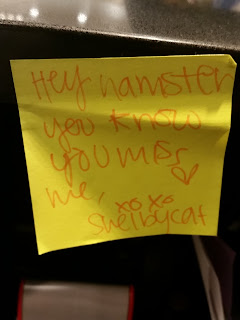 Hey hamster
you know
you miss
me, xoxo
Shelbycat